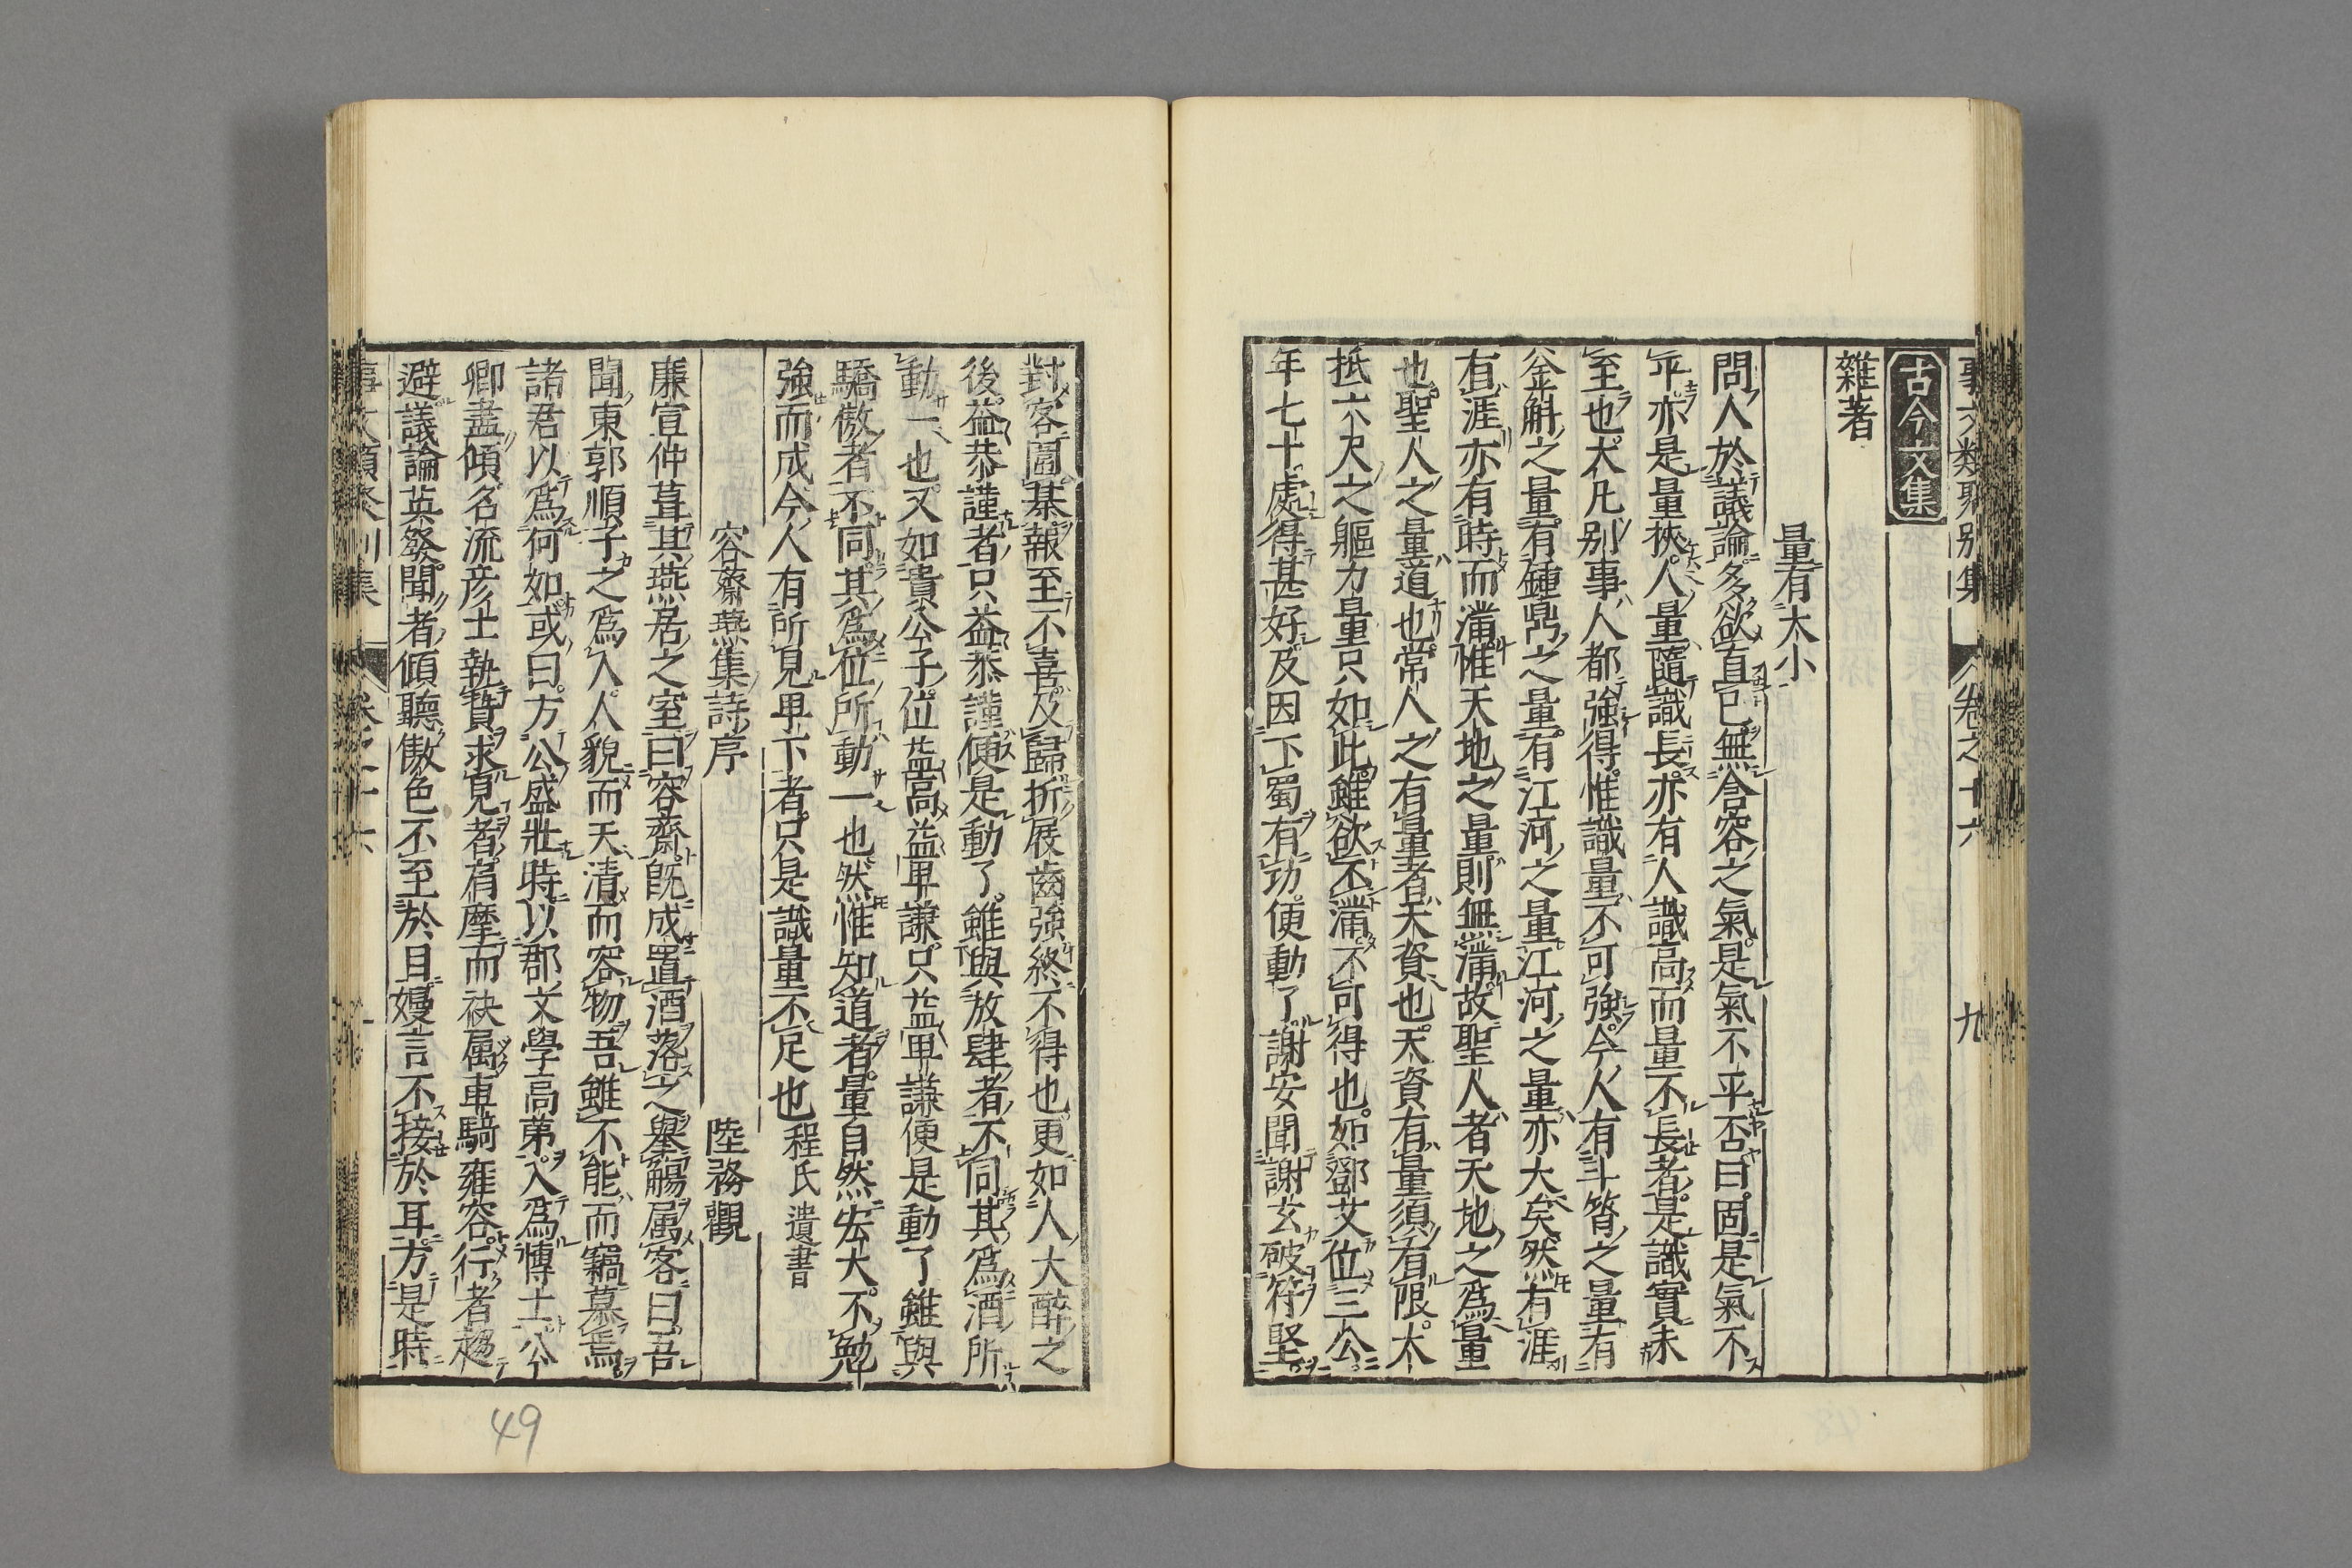 事文類聚別集 卷之十六 九
古今文集
雜著
量有大小
問人於議論多欲直已無含容之氣是氣不平否曰固是氣不
平亦是量狹人量隨識長亦有人識高而量不長者是識實未
至也大凡別事人都強得惟識量不可強今人有斗筲之量有
釜斛之量有鍾鼎之量有江河之量江河之量亦大矣然有涯
有涯亦有時而滿惟天地之量則無滿故聖人者天地之爲量
也聖人之量道也常人之有量者天資也天資有量須有限大
抵六尺之軀力量只如此雖欲不滿不可得也如鄧艾位三公
年七十處得甚好及因下蜀有功便動了謝安聞謝玄破符堅
對客圍棊報至不喜及歸折屐齒強終不得也更如人大醉之
後益恭謹者只益恭謹便是動了雖與放肆者不同其爲酒所
動一也又如貴公子位益高益卑謙只益卑謙便是動了雖與
驕傲者不同其爲位所動一也然惟知道者量自然宏大不勉
強而成今人有所見卑下者只是識量不足也程氏遺書
容齋燕集詩序 陸務觀
廉宣仲葺其燕居之室曰容齋旣成置酒落之舉觴属客曰吾
聞東郭順子之爲人人貌而天清而容物吾雖不能而竊慕焉
諸君以爲何如或曰方公盛壯時以郡文學高第入爲博士公
卿盡傾名流彥士執贄求見者肩摩而袂属車騎雍容行者趨
避議論英發聞者傾聽傲色不至於目嫚言不接於耳方是時
49